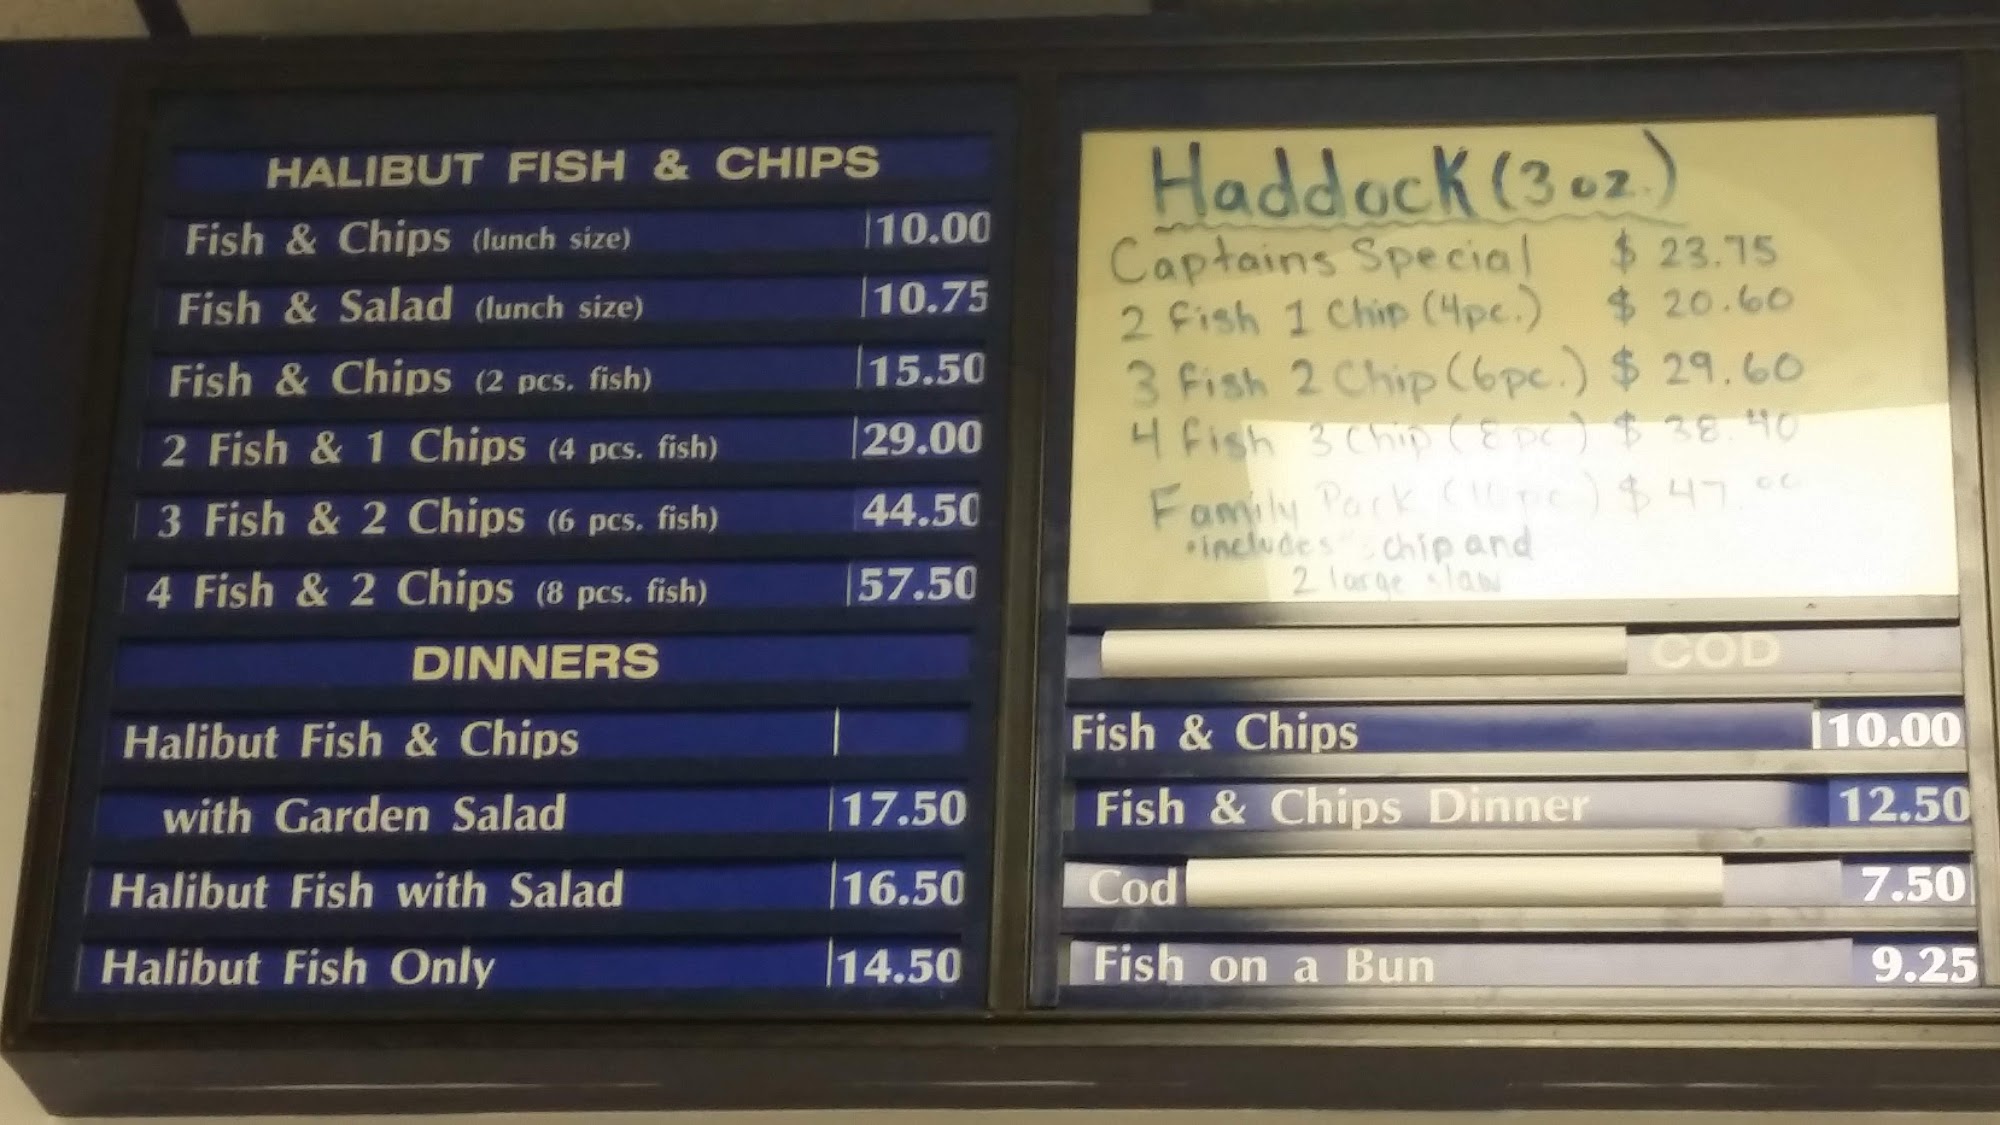 HALIBUT FISH & CHIPS
Fish & Chips (lunch size) 10.00
Fish & Salad (lunch size) 10.75
Fish & Chips (2 pcs. fish) 15.50
2 Fish & 1 Chips (4 pcs. fish) 29.00
3 Fish & 2 Chips (6 pcs. fish) 44.50
4 Fish & 2 Chips (8 pcs. fish) 57.50
DINNERS
Halibut Fish & Chips
with Garden Salad 17.50
Halibut Fish with Salad 16.50
Halibut Fish Only 14.50
Haddock (3 oz.)
Captains Special $ 23.75
2 Fish 1 Chip (4pc.) $ 20.60
3 Fish 2 Chip (6pc.) $ 29.60
4 Fish 3 Chip (8pc) $ 38.40
Family Pack (10pc) $ 47.00
•includes chip and
2 large slaw
COD
Fish & Chips 10.00
Fish & Chips Dinner 12.50
Cod 7.50
Fish on a Bun 9.25